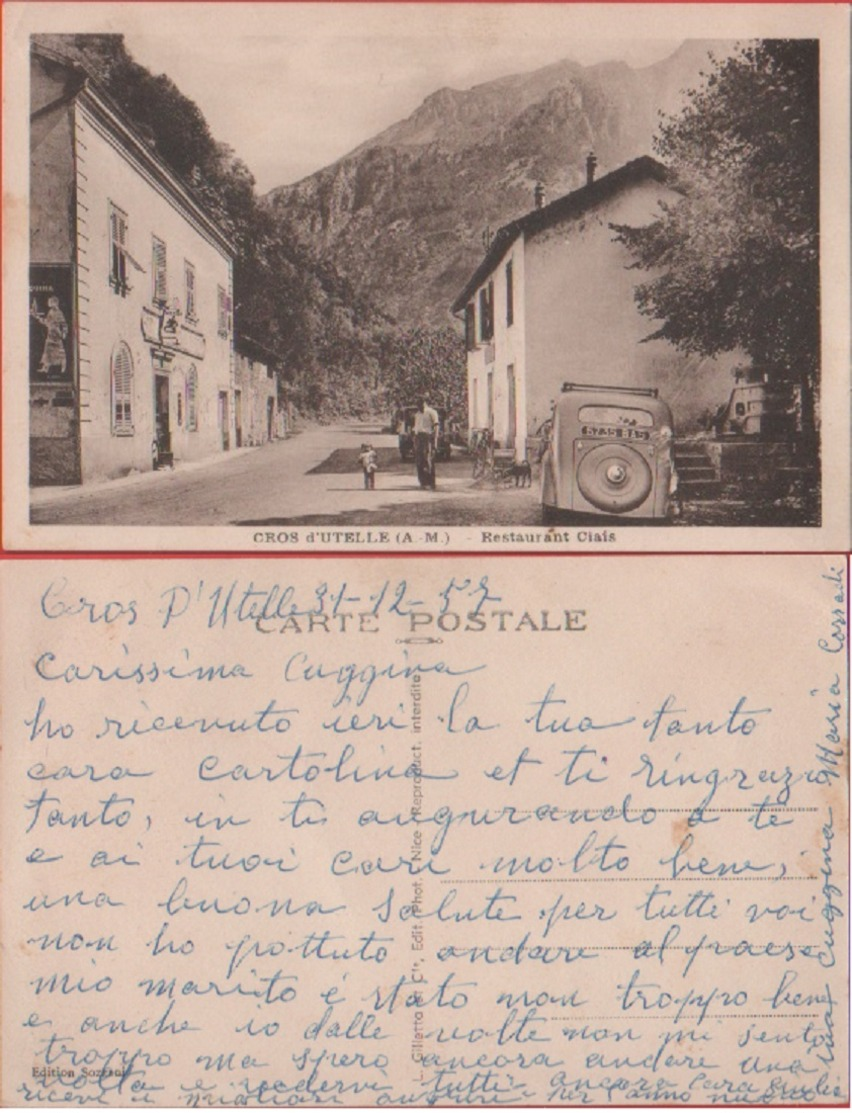 5735 BA5
CROS d'UTELLE (A.-M.) - Restaurant Ciais
Cros D'Utelle 31-12-57
CARTE POSTALE
Carissima Cuggina
ho ricevuto ieri la tua tanto
cara cartolina et ti ringrazio
tanto, in ti augurando a te
e ai tuoi cari molto bene,
una buona salute per tutti voi
non ho pottuto andare al paese
mio marito é stato non troppo bene
e anche io dalle volte non mi sento
troppo ma spero ancora andare una
volta e vedervi tutti ancora cara
ricevi i migliori auguri per l'anno nuovo
tua Cuggina Maria Corradi
L. Gilletta & Cie, Edit. Phot. Nice (Reproduct. interdite)
Edition